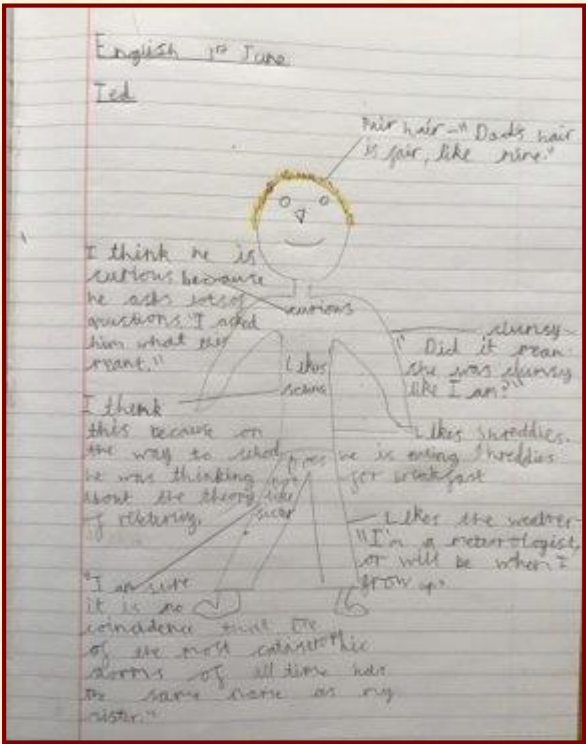 English 1st June
Ted
Fair hair - "Dads hair
is fair, like mine."
I think he is
curious because
he asks lots of
questions "I asked
him what this
meant."
curious
clumsy
"Did it mean
she was clumsy
like I am?"
Likes
science
I think
this because on
the way to school
he was thinking
about the theory
of relativity.
Likes shreddies.
he is eating Shreddies
for breakfast
Does
not
like
sister
Likes the weather-
"I'm a meteorologist,
or will be when I
grow up"
"I am sure
it is no
coincidence that one
of the most catastrophic
storms of all time has
the same name as my
sister."